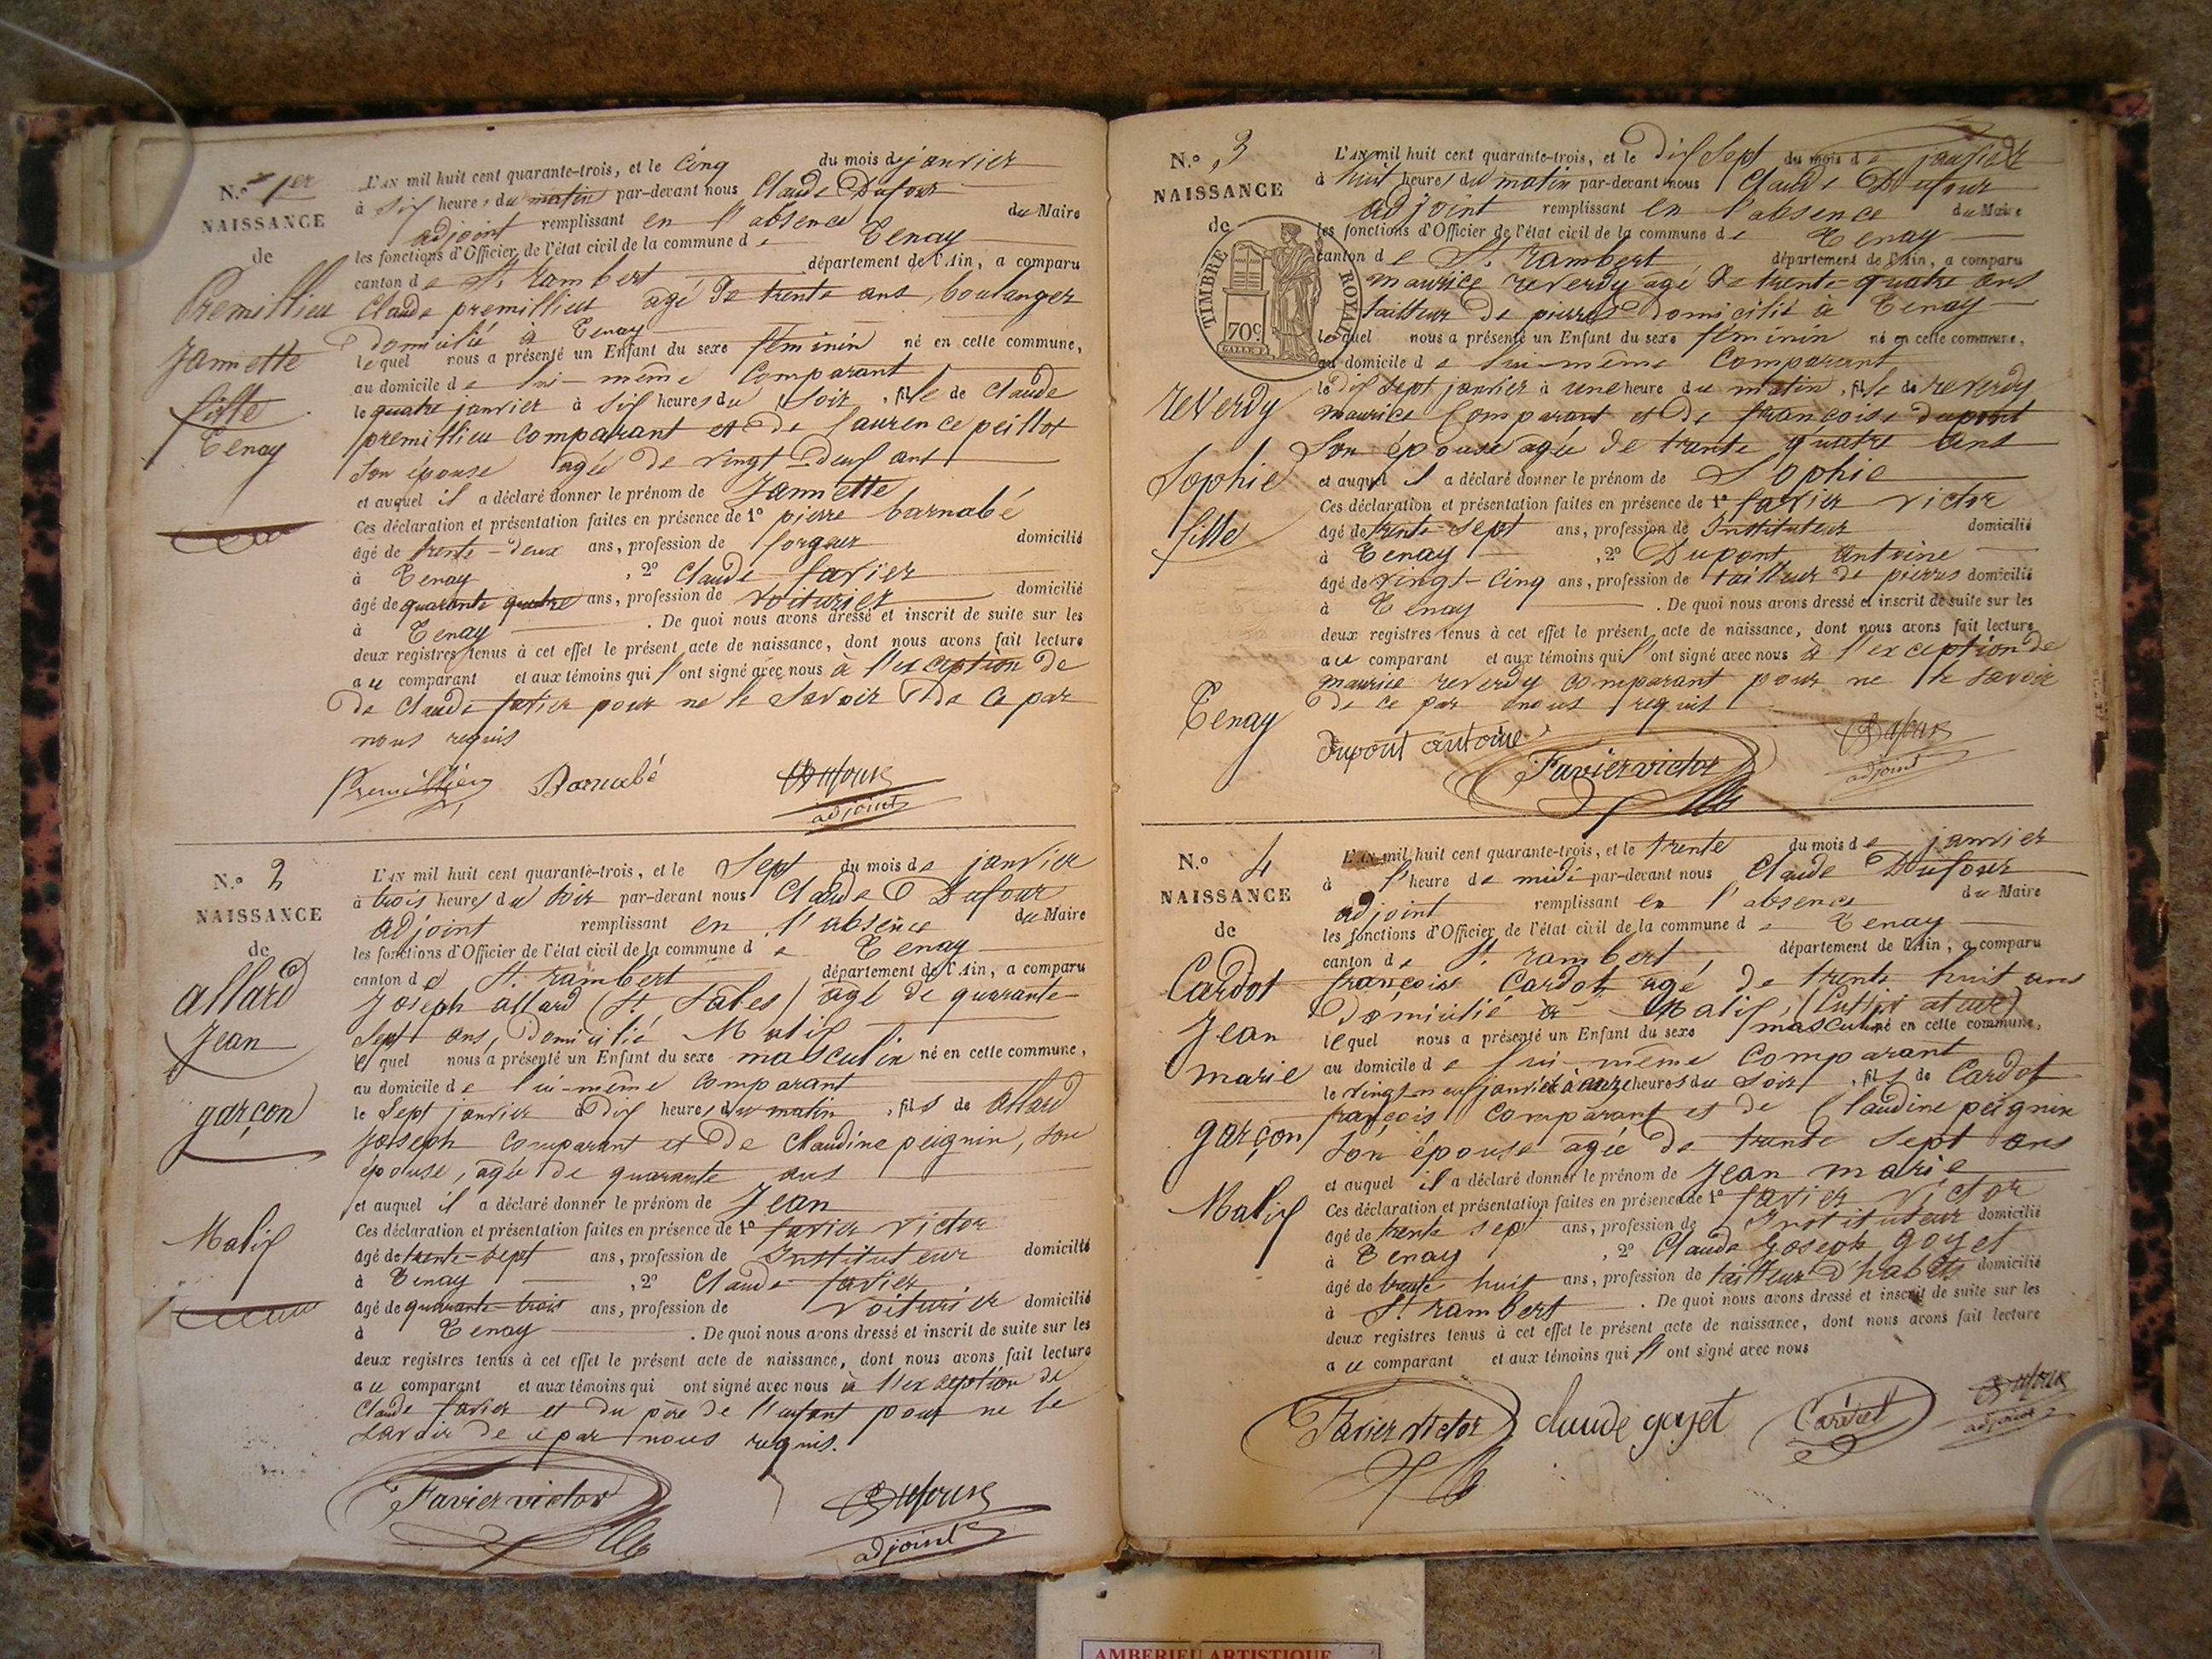 N.º 1er
NAISSANCE
de
Premillieu
Jannette
fille
Tenay
L'AN mil huit cent quarante-trois, et le cinq du mois de janvier
à six heures du matin par-devant nous Claude Dufour
adjoint remplissant en l'absence du Maire
les fonctions d'Officier de l'état civil de la commune de Tenay
canton de St. rambert département de l'Ain, a comparu
Claude premillieu agé de trente ans, boulanger
domicilié à Tenay
lequel nous a présenté un Enfant du sexe féminin né en cette commune,
au domicile de lui-même Comparant
le quatre janvier à six heures du soir, fille de Claude
premillieu comparant et de laurence peillot
son épouse agée de vingt-deux ans
et auquel il a déclaré donner le prénom de Jannette
Ces déclaration et présentation faites en présence de 1º pierre barnabé
âgé de trente-deux ans, profession de forgeur domicilié
à Tenay, 2º Claude favier
âgé de quarante quatre ans, profession de voiturier domicilié
à Tenay. De quoi nous avons dressé et inscrit de suite sur les
deux registres tenus à cet effet le présent acte de naissance, dont nous avons fait lecture
au comparant et aux témoins qui l'ont signé avec nous à l'exception de
de Claude favier pour ne le savoir de ce par
nous requis
Premillieu Barnabé Dufour
adjoint
N.º 2
NAISSANCE
de
allard
Jean
garçon
Malix
L'AN mil huit cent quarante-trois, et le Sept du mois de janvier
à trois heures du soir par-devant nous Claude Dufour
adjoint remplissant en l'absence du Maire
les fonctions d'Officier de l'état civil de la commune de Tenay
canton de St. rambert département de l'Ain, a comparu
Joseph allard (St. Sales) agé de quarante-
Sept ans, domicilié Malix
lequel nous a présenté un Enfant du sexe masculin né en cette commune,
au domicile de lui-même comparant
le Sept janvier à dix heures du matin, fils de allard
joseph comparant et de Claudine peignin, son
épouse, agée de quarante ans
et auquel il a déclaré donner le prénom de Jean
Ces déclaration et présentation faites en présence de 1º favier victor
âgé de trente-sept ans, profession de Instituteur domicilié
à Tenay, 2º Claude favier
âgé de quarante-trois ans, profession de voiturier domicilié
à Tenay. De quoi nous avons dressé et inscrit de suite sur les
deux registres tenus à cet effet le présent acte de naissance, dont nous avons fait lecture
au comparant et aux témoins qui ont signé avec nous à l'exception de
Claude favier et du père de l'enfant pour ne le
savoir de ce par nous requis.
Favier victor Dufour
adjoint
N.º 3
NAISSANCE
de
TIMBRE ROYAL
70c.
reverdy
Sophie
fille
Tenay
L'AN mil huit cent quarante-trois, et le dix Sept du mois de janvier
à huit heures du matin par-devant nous Claude Dufour
adjoint remplissant en l'absence du Maire
les fonctions d'Officier de l'état civil de la commune de Tenay
canton de St. rambert département de l'Ain, a comparu
maurice reverdy agé de trente-quatre ans
tailleur de pierres domicilié à Tenay
lequel nous a présenté un Enfant du sexe féminin né en cette commune,
au domicile de lui-même Comparant
le dix sept janvier à une heure du matin, fille de reverdy
maurice Comparant et de françoise dupont
Son épouse agée de trante quatre ans
et auquel il a déclaré donner le prénom de Sophie
Ces déclaration et présentation faites en présence de 1º favier victor
âgé de trente-sept ans, profession de Instituteur domicilié
à Tenay, 2º Dupont Antoine
âgé de vingt-cinq ans, profession de tailleur de pierres domicilié
à Tenay. De quoi nous avons dressé et inscrit de suite sur les
deux registres tenus à cet effet le présent acte de naissance, dont nous avons fait lecture
au comparant et aux témoins qui l'ont signé avec nous à l'exception de
maurice reverdy comparant pour ne le savoir
de ce par nous requis
dupont antoine Favier victor Dufour
adjoint
N.º 4
NAISSANCE
de
Cardot
Jean
marie
garçon
Malix
L'AN mil huit cent quarante-trois, et le trente du mois de janvier
à l'heure de midi par-devant nous Claude Dufour
adjoint remplissant en l'absence du Maire
les fonctions d'Officier de l'état civil de la commune de Tenay
canton de St. rambert, département de l'Ain, a comparu
françois Cardot agé de trente huit ans
domicilié à Malix, (Cultivateur)
lequel nous a présenté un Enfant du sexe masculin né en cette commune,
au domicile de lui-même Comparant
le vingt-neuf janvier à onze heures du soir, fils de Cardot
françois Comparant et de Claudine peignin
son épouse agée de trante sept ans
et auquel il a déclaré donner le prénom de Jean marie
Ces déclaration et présentation faites en présence de 1º favier victor
âgé de trente sept ans, profession de Instituteur domicilié
à Tenay, 2º Claude Joseph goyet
âgé de trente huit ans, profession de tailleur d'habits domicilié
à St. rambert. De quoi nous avons dressé et inscrit de suite sur les
deux registres tenus à cet effet le présent acte de naissance, dont nous avons fait lecture
au comparant et aux témoins qui l'ont signé avec nous
Favier victor claude goyet Dufour
adjoint
AMBERIEU ARTISTIQUE